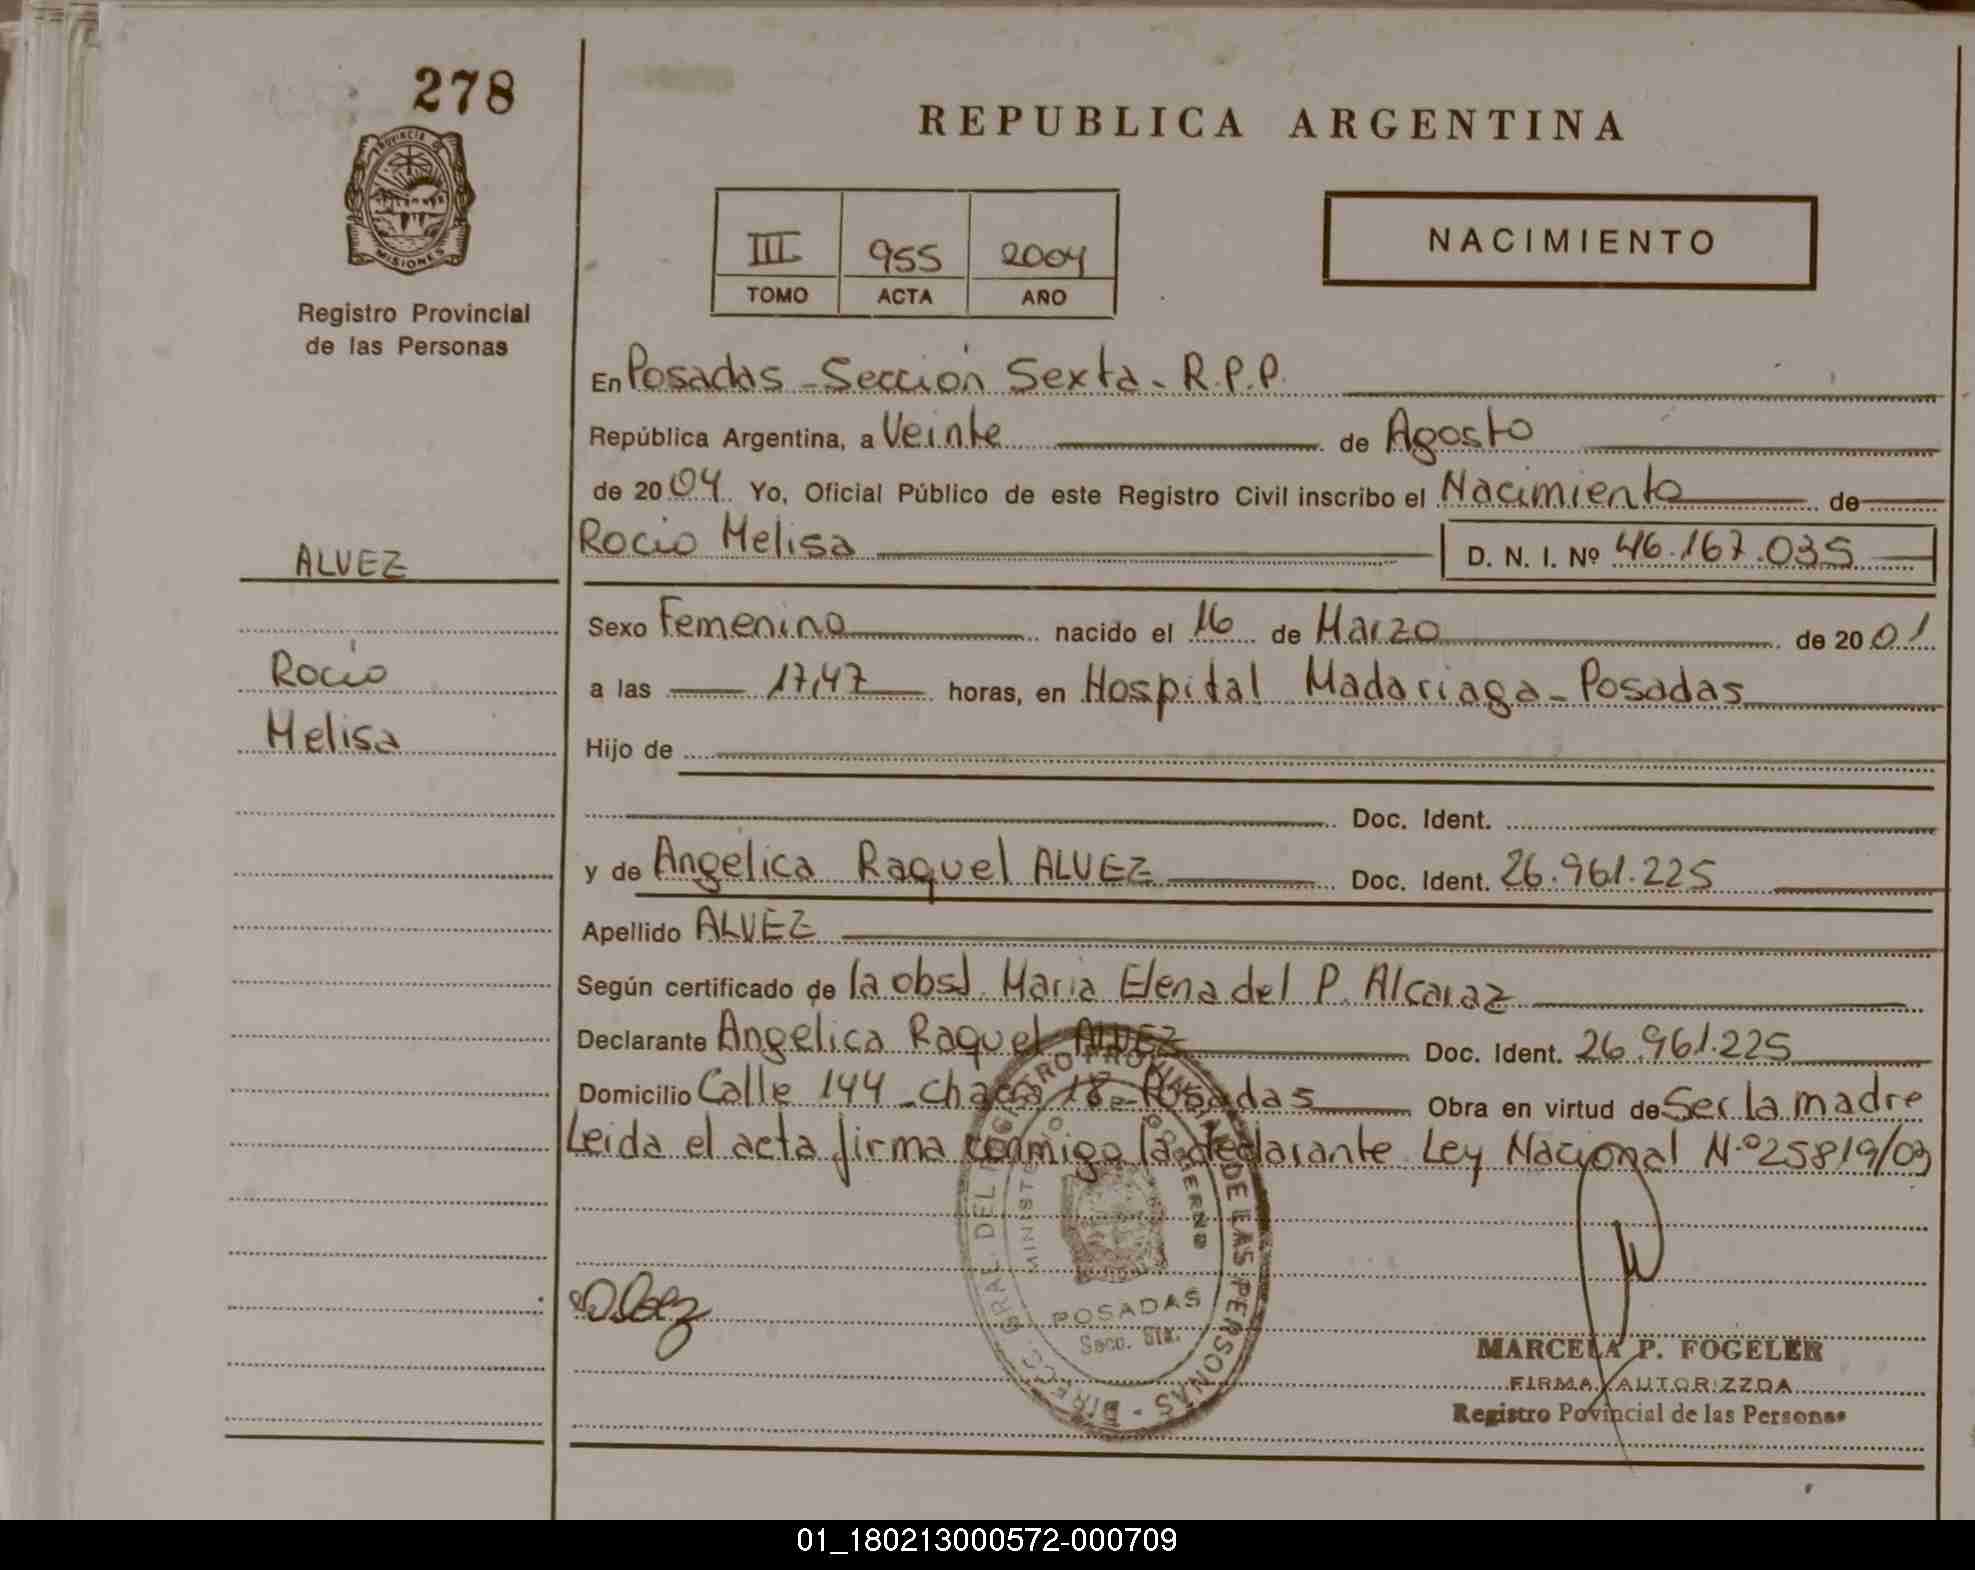 278
PROVINCIA DE
MISIONES
Registro Provincial
de las Personas
ALVEZ
Rocio
Melisa
REPUBLICA ARGENTINA
III 955 2004
TOMO ACTA AÑO
NACIMIENTO
En Posadas - Sección Sexta - R.P.P.
República Argentina, a Veinte de Agosto
de 2004 Yo, Oficial Público de este Registro Civil inscribo el Nacimiento de
Rocio Melisa D. N. I. Nº 46.167.035
Sexo Femenino nacido el 16 de Marzo de 2001
a las 17,47 horas, en Hospital Madariaga - Posadas
Hijo de
Doc. Ident.
y de Angelica Raquel ALVEZ Doc. Ident. 26.961.225
Apellido ALVEZ
Según certificado de la obst. Maria Elena del P. Alcaraz
Declarante Angelica Raquel ALVEZ Doc. Ident. 26.961.225
Domicilio Calle 144 - Chacra 18 - Posadas Obra en virtud de Ser la madre
Leida el acta firma conmigo la declarante Ley Nacional N.º 25819/03
DIRECC. GRAL. DEL REGISTRO PROVINCIAL DE LAS PERSONAS -
MINISTERIO DE GOBIERNO
POSADAS
Secc. 6ta.
MARCELA P. FOGELER
FIRMA AUTORIZZDA
Registro Povincial de las Personas
01_180213000572-000709